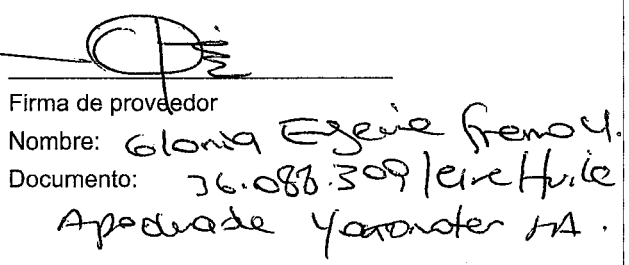 Firma de proveedor
Nombre: Gloria Egenia
Documento: 36.088.309 Huila
Apoderada Yaxonoter SA.